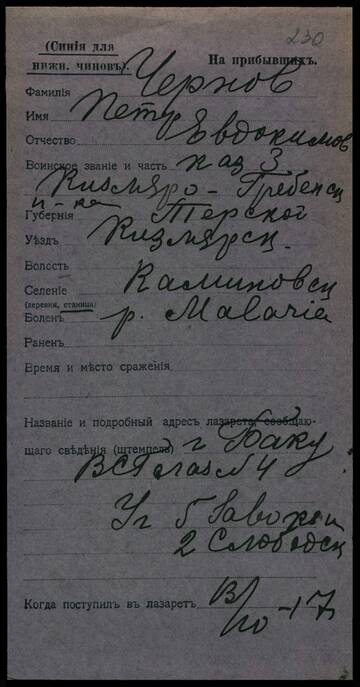 230
(Синія для
нижн. чиновъ).
На прибывшихъ.
Фамилія Чернов
Имя Петр
Отчество Евдокимов
Воинское званіе и часть каз 3
Кизляро-Гребенск
п-ка
Губернія Терской
Уѣздъ Кизлярск.
Волость
Селеніе Калиновск
(деревня, станица)
Боленъ р. Malaria
Раненъ
Время и мѣсто сраженія
Названіе и подробный адресъ лазарета, сообщаю-
щаго свѣдѣнія (штемпель) г Баку
ВСГ лаз N 4
Уг 5 Завокзн
2 Слободск
Когда поступил въ лазаретъ 13/10-17